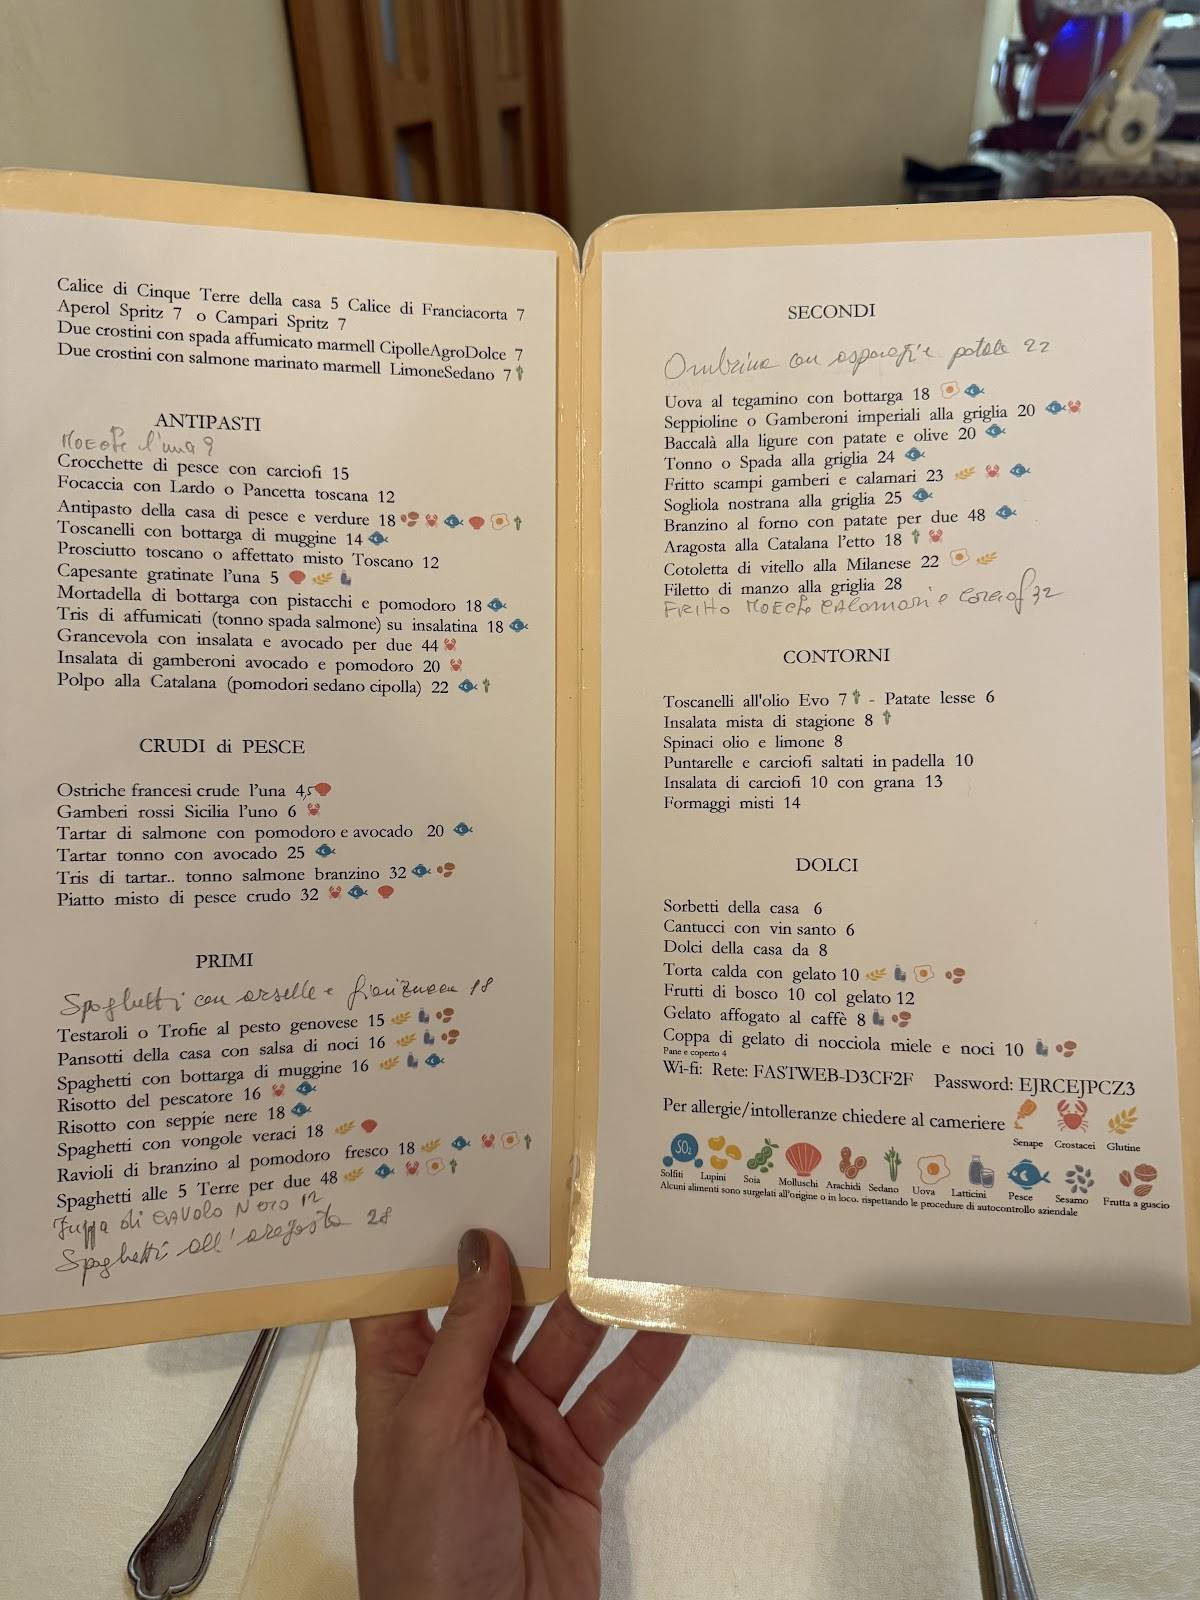 Calice di Cinque Terre della casa 5 Calice di Franciacorta 7
Aperol Spritz 7 o Campari Spritz 7
Due crostini con spada affumicato marmell CipolleAgroDolce 7
Due crostini con salmone marinato marmell LimoneSedano 7
ANTIPASTI
Moeche l'una 9
Crocchette di pesce con carciofi 15
Focaccia con Lardo o Pancetta toscana 12
Antipasto della casa di pesce e verdure 18
Toscanelli con bottarga di muggine 14
Prosciutto toscano o affettato misto Toscano 12
Capesante gratinate l'una 5
Mortadella di bottarga con pistacchi e pomodoro 18
Tris di affumicati (tonno spada salmone) su insalatina 18
Grancevola con insalata e avocado per due 44
Insalata di gamberoni avocado e pomodoro 20
Polpo alla Catalana (pomodori sedano cipolla) 22
CRUDI di PESCE
Ostriche francesi crude l'una 4,5
Gamberi rossi Sicilia l'uno 6
Tartar di salmone con pomodoro e avocado 20
Tartar tonno con avocado 25
Tris di tartar.. tonno salmone branzino 32
Piatto misto di pesce crudo 32
PRIMI
Spaghetti con arselle e 18
Testaroli o Trofie al pesto genovese 15
Pansotti della casa con salsa di noci 16
Spaghetti con bottarga di muggine 16
Risotto del pescatore 16
Risotto con seppie nere 18
Spaghetti con vongole veraci 18
Ravioli di branzino al pomodoro fresco 18
Spaghetti alle 5 Terre per due 48
Zuppa di CAVOLO NERO 12
Spaghetti all'aragosta 28
SECONDI
Ombrina con asparagi e patate 22
Uova al tegamino con bottarga 18
Seppioline o Gamberoni imperiali alla griglia 20
Baccalà alla ligure con patate e olive 20
Tonno o Spada alla griglia 24
Fritto scampi gamberi e calamari 23
Sogliola nostrana alla griglia 25
Branzino al forno con patate per due 48
Aragosta alla Catalana l'etto 18
Cotoletta di vitello alla Milanese 22
Filetto di manzo alla griglia 28
FRITTO MOECHE CALAMARI e 32
CONTORNI
Toscanelli all'olio Evo 7 - Patate lesse 6
Insalata mista di stagione 8
Spinaci olio e limone 8
Puntarelle e carciofi saltati in padella 10
Insalata di carciofi 10 con grana 13
Formaggi misti 14
DOLCI
Sorbetti della casa 6
Cantucci con vin santo 6
Dolci della casa da 8
Torta calda con gelato 10
Frutti di bosco 10 col gelato 12
Gelato affogato al caffè 8
Coppa di gelato di nocciola miele e noci 10
Pane e coperto 4
Wi-fi: Rete: FASTWEB-D3CF2F Password: EJRCEJPCZ3
Per allergie/intolleranze chiedere al cameriere
Senape Crostacei Glutine
SO2
Solfiti Lupini Soia Molluschi Arachidi Sedano Uova Latticini Pesce Sesamo Frutta a guscio
Alcuni alimenti sono surgelati all'origine o in loco. rispettando le procedure di autocontrollo aziendale